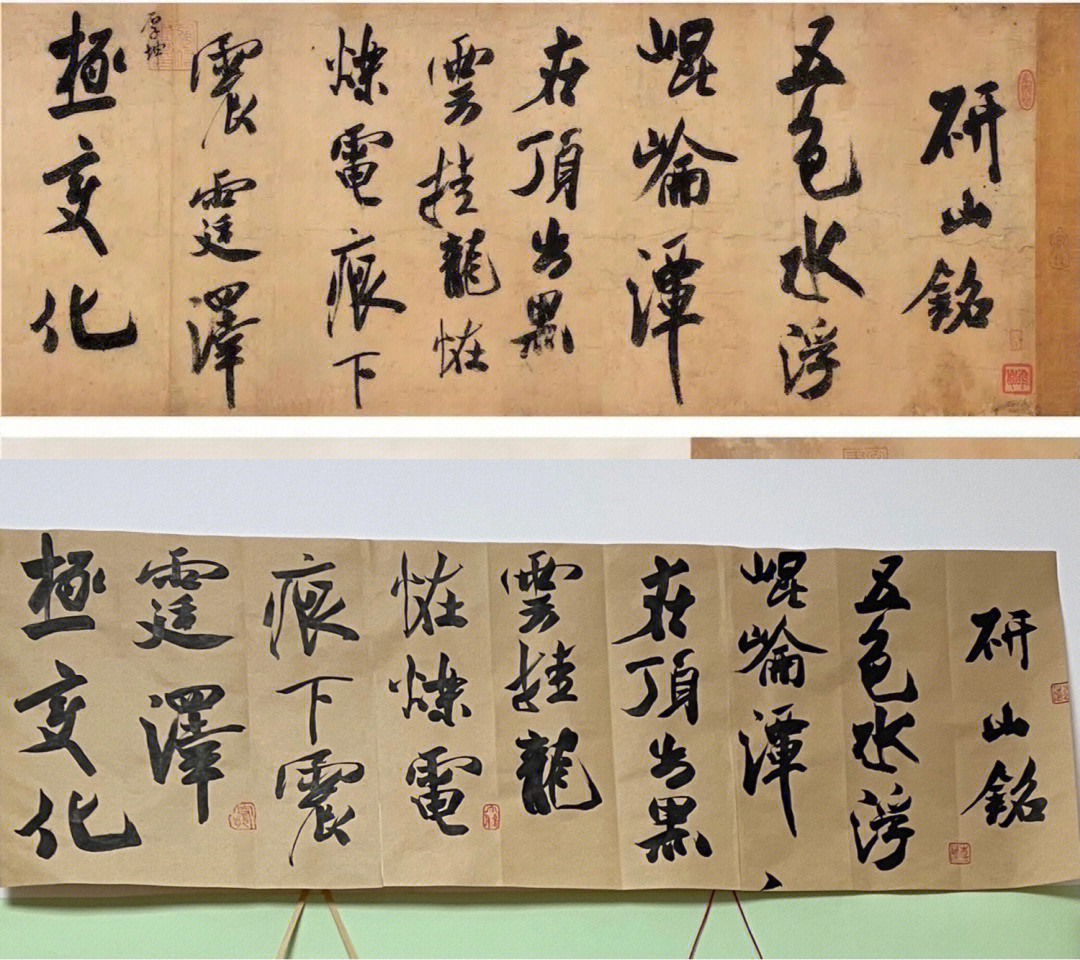 研山銘
五色水浮
崐崘潭
在頂出黑
雲挂龍恠
爍電痕下
震霆澤
厚坤
極變化
研山銘
五色水浮
崐崘潭
在頂出黑
雲挂龍
恠爍電
痕下震
霆澤
極變化